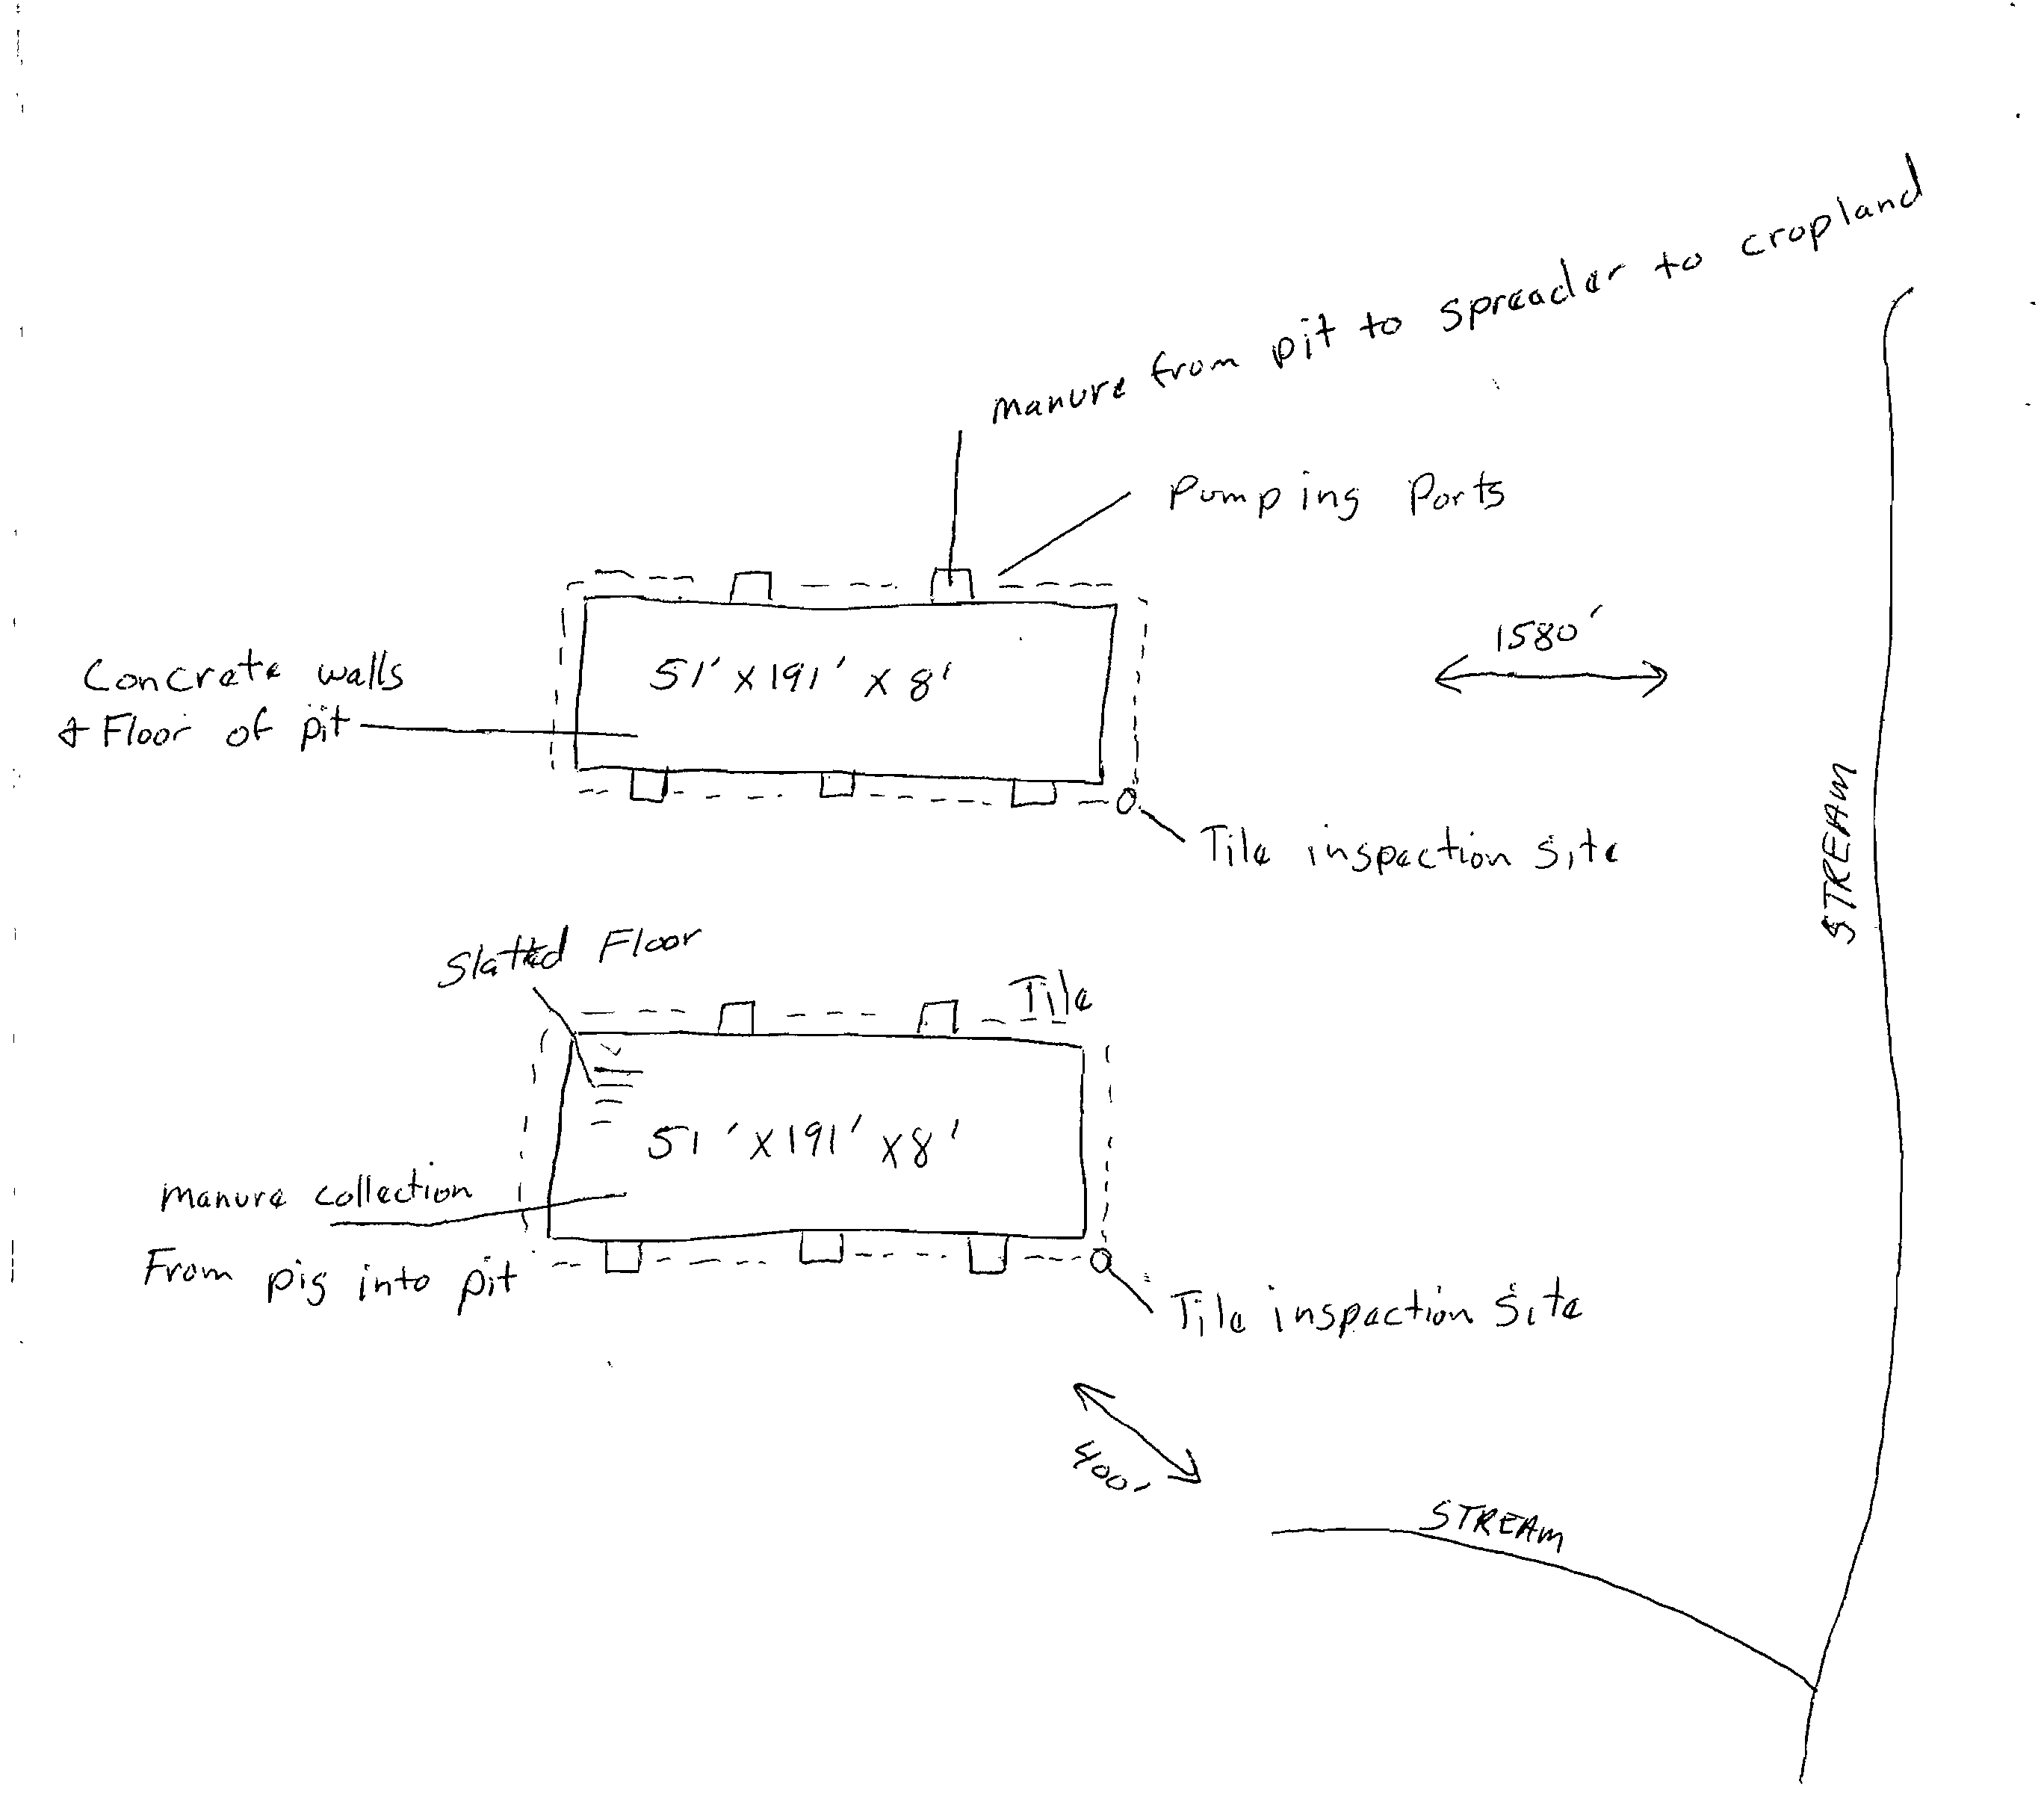 Manure from pit to spreader to cropland
Pumping Ports
1580'
51' x 191' x 8'
Concrete walls
& Floor of pit
STREAM
Tile inspection site
Slatted Floor
Tile
51' x 191' x 8'
Manure collection
From pig into pit
Tile inspection site
400'
STREAM